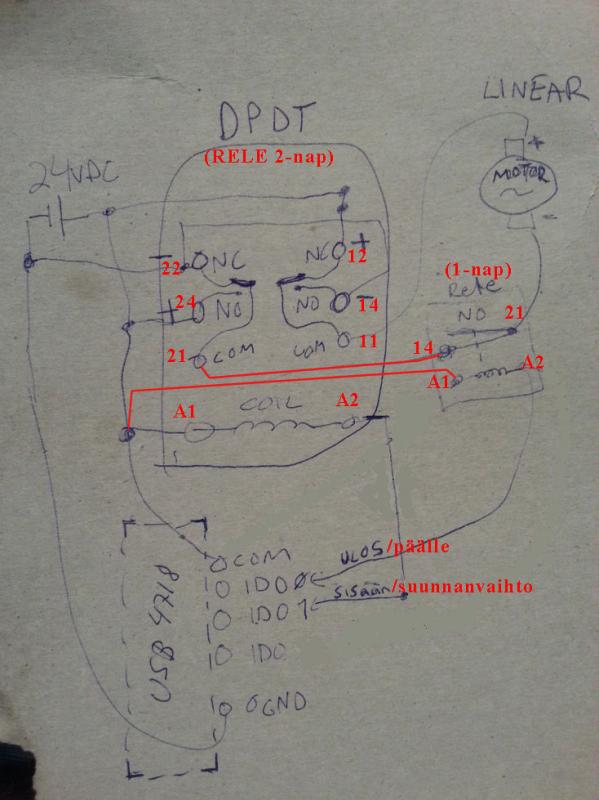 LINEAR
DPDT
(RELE 2-nap)
24VDC
+
MOTOR
~
-
-
22
NC
NC
+
12
(1-nap)
Rele
+
24
NO
NO
14
-
NO
21
21
COM
COM
11
14
A1
A2
A1
COIL
A2
COM
ULOS/päälle
IDO0
SISÄÄN/suunnanvaihto
IDO1
IDO
USB 4718
GND